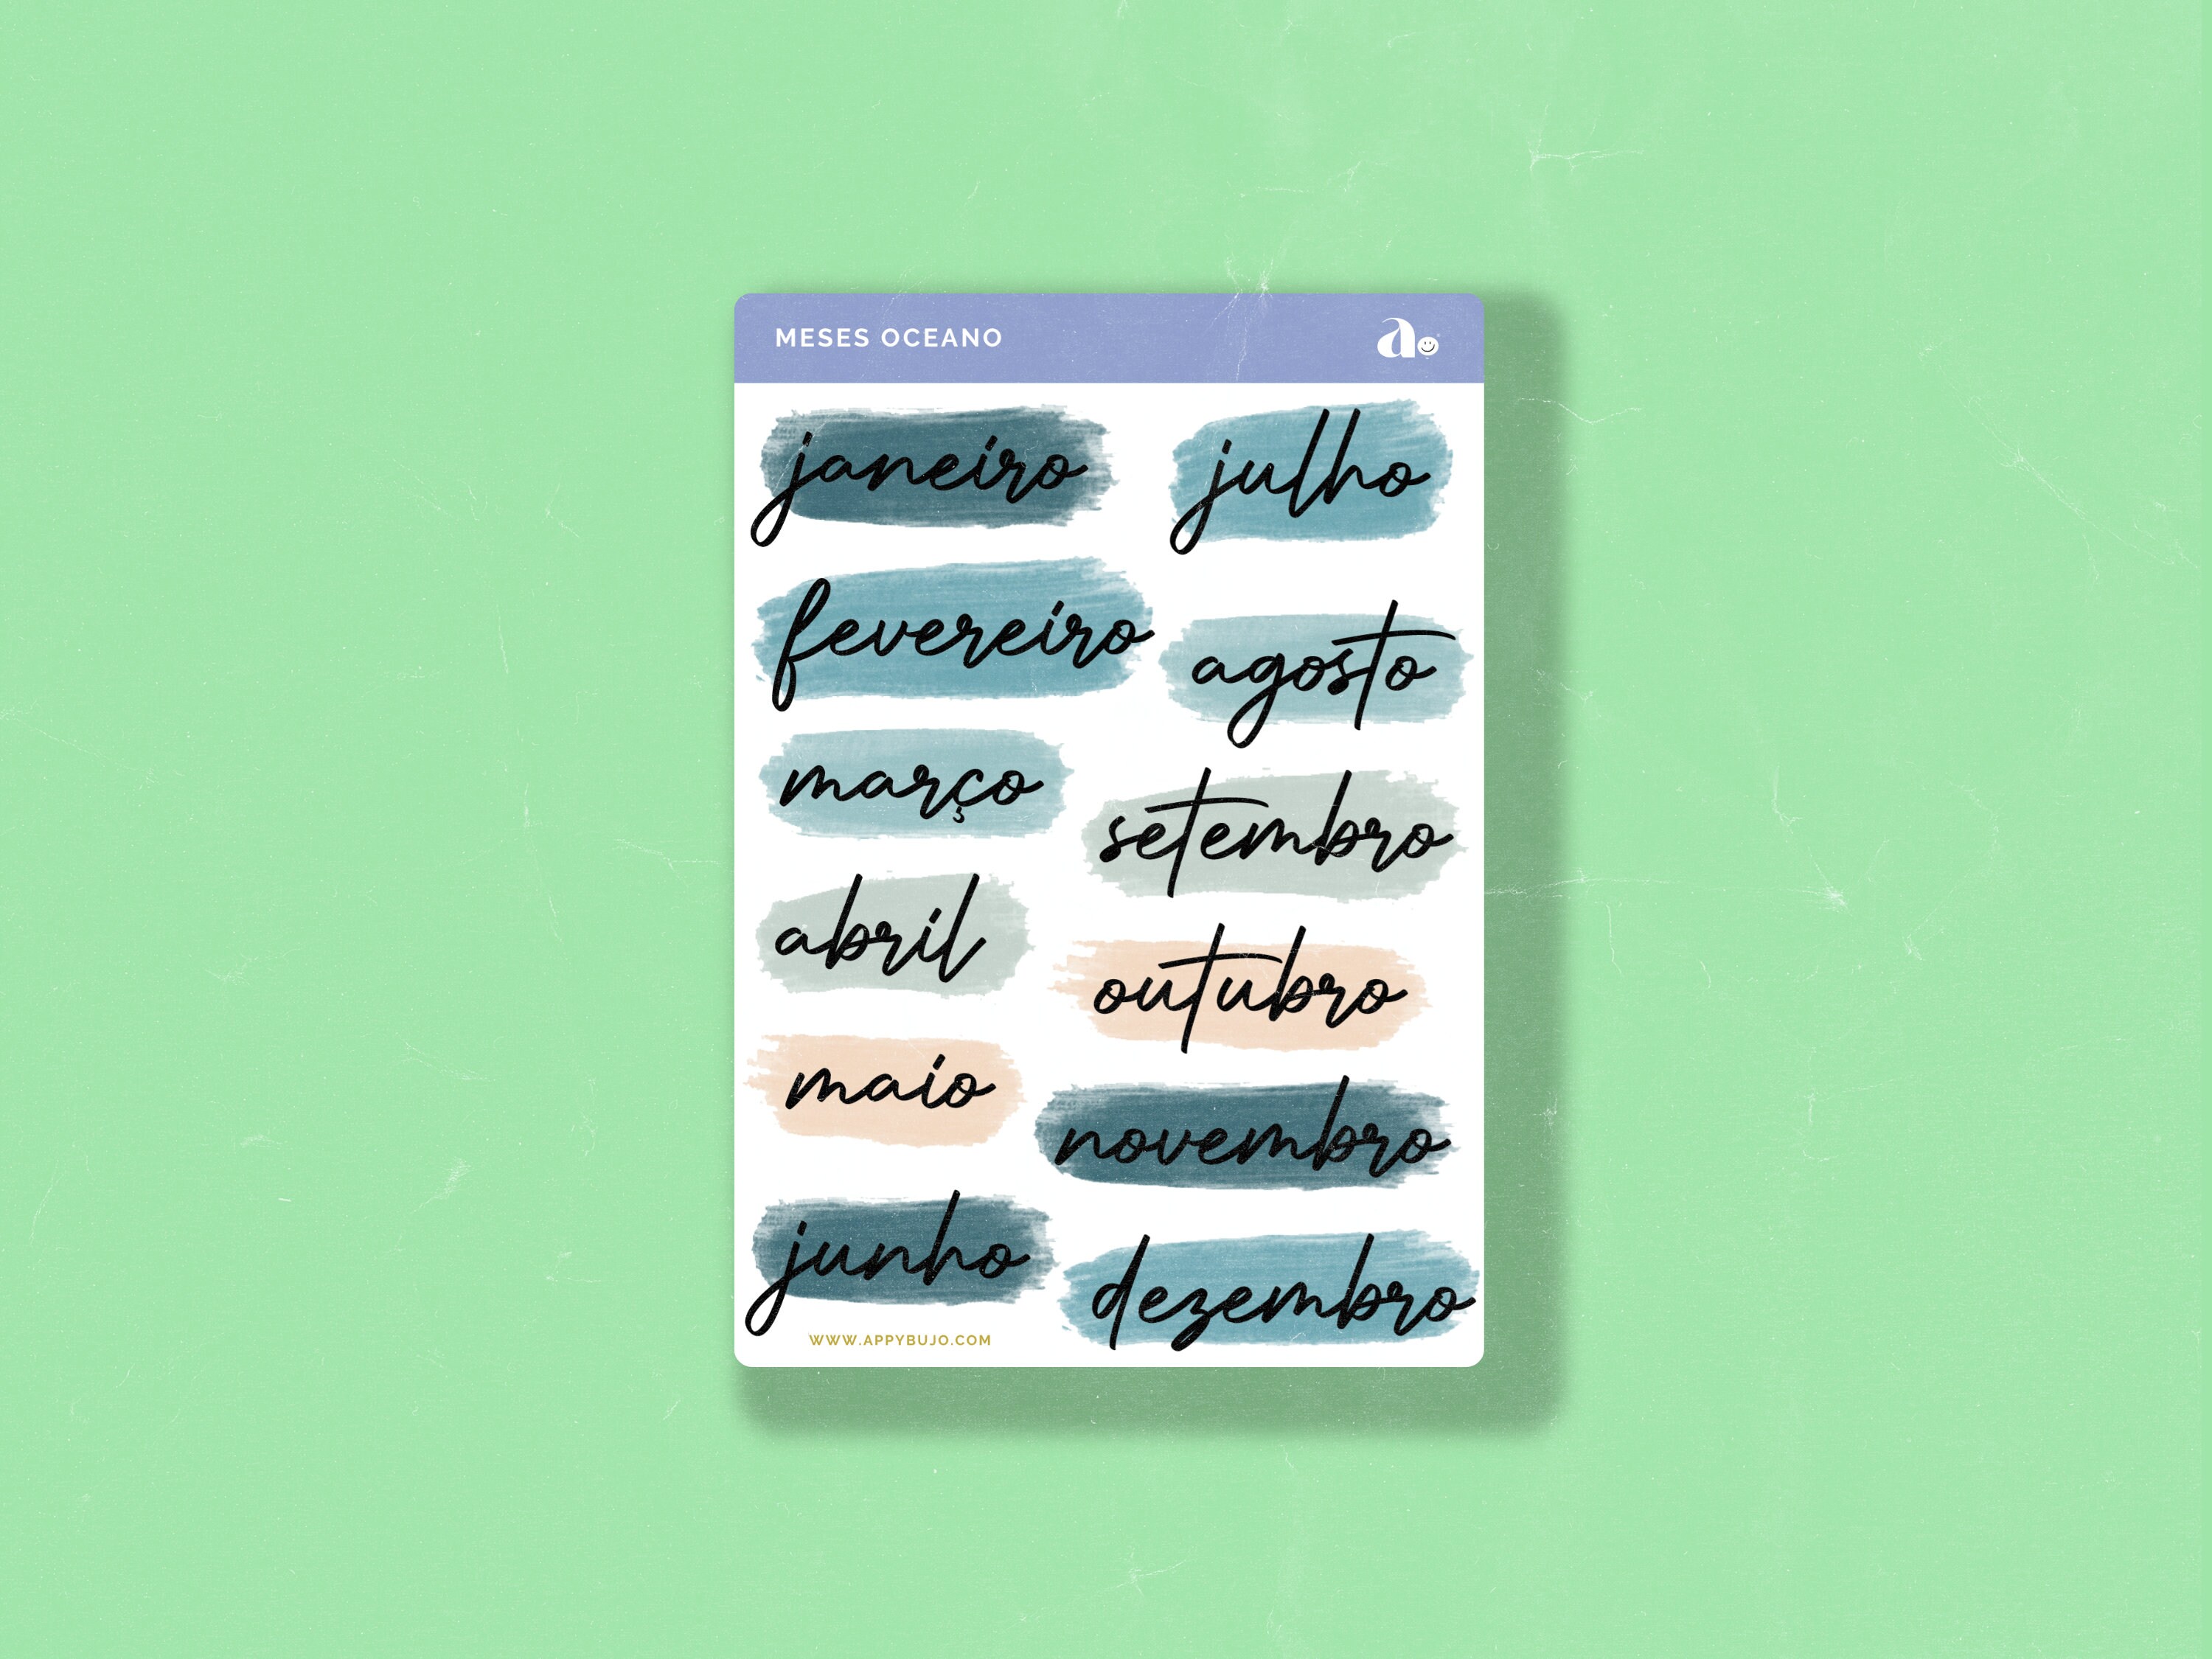 MESES OCEANO
a
janeiro
fevereiro
março
abril
maio
junho
julho
agosto
setembro
outubro
novembro
dezembro
WWW.APPYBUJO.COM